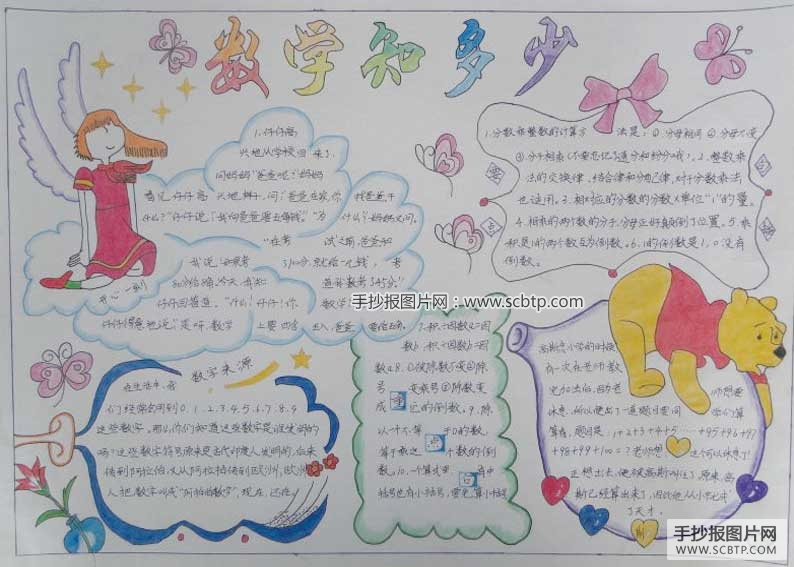 数学知多少
1.仔仔高
兴地从学校回来了,
问妈妈"爸爸呢?"妈妈
看见仔仔高兴地样子,问:"爸爸在家,你找爸爸干
什么?"仔仔说,"我向爸爸要去 钱。""为什么?"妈妈又问。
"在考试之前,爸爸和
我说,如果考了100分,就给一元钱,考
80分给 今天,我和 道
仔仔回答道。"什么!仔仔!你 数学
仔仔得意地说:"是呀,数学上要四舍五入,爸爸 要给五角。
开心一刻
1.分数乘整数的计算方法是:①.分母相同 ②.分母不变
③.分子相乘(不要忘记了通分和约分哦)。2.整数乘
法的交换律、结合律和分配律,对于分数乘法
也适用。3.相对应的分数的分数=单位"1"的量。
4.相乘的两个数的分子、分母正好颠倒了位置。5.乘
积是1的两个数互为倒数。6.1的倒数是1,0没有
倒数。
手抄报图片网:www.scbtp.com
数字来源
在生活中,我
们经常会用到0、1、2、3、4、5、6、7、8、9
这些数字。那么你们知道这些数字是谁发明的
吗?这些数字符号原来是古代印度人发明的,后来
传到阿拉伯,又从阿拉伯传到欧洲,欧洲
人把数字叫成"阿拉伯数字",现在,还在
7.积÷因数=因
数 积÷因数=因
数 8.①被除数不变②除
号变乘号③除数变
成它的倒数。9.除
以一个不等于0的数,
等于乘这个数的倒
数。10.一个算式里有中
括号也有小括号,要先算小括号
高斯念小学的时候
有一次在老师教
完加法后,因为老师想要
休息,所以便出了一道题目要同学们算
算看,题目是:1+2+3+4+5……+95+96+97
+98+99+100=?老师想 这个可以休息了!
正想出去,他被高斯叫住了 原来,高
斯已经算出来了,因此他从小就成
了天才。
手抄报图片网
WWW.SCBTP.COM